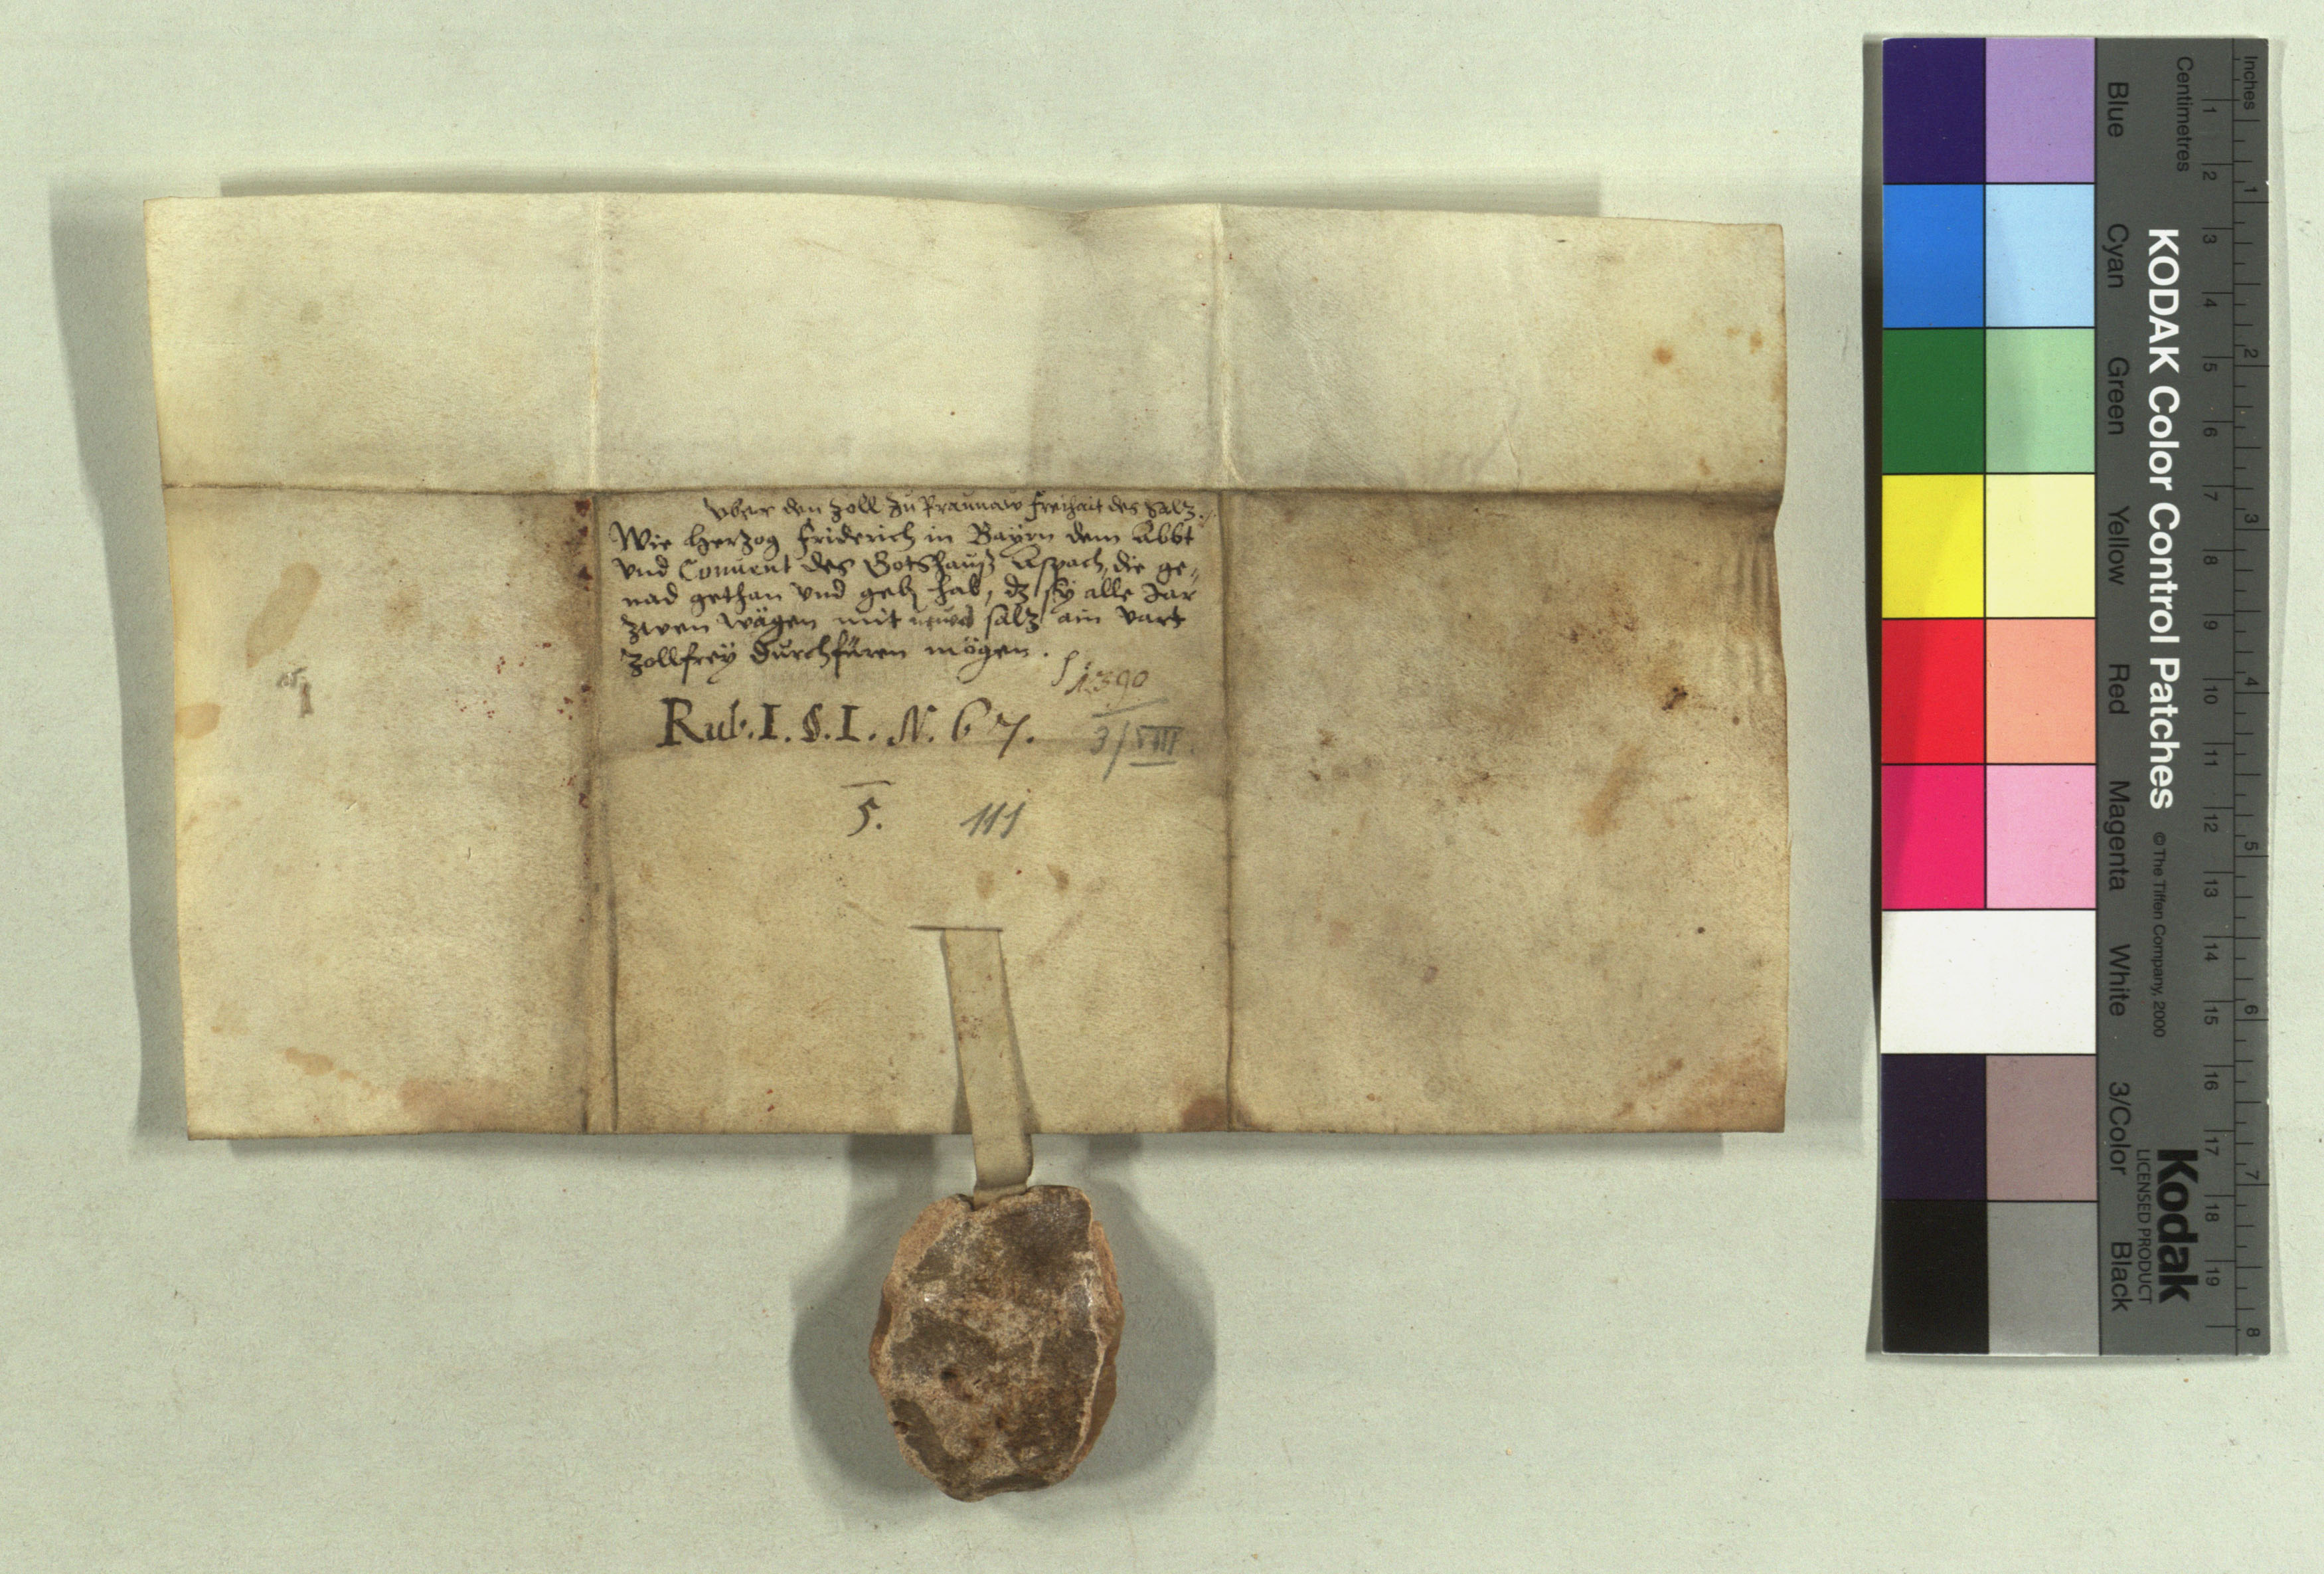 vber den zoll zu Praunaw freihait des Salz.
Wie Herzog Friderich in Bayrn dem Abbt
vnd Conuent des Gotshauß Aspach, die ge-
nad gethan vnd geb hab, dz sÿ alle Jar
zwen wägen mit salz ain vart
zollfreÿ durchfüren mögen.
1390
3/VIII.
Rub. I. S. I. N. 67.
5. 111
Inches
Centimetres
1 2 3 4 5 6 7 8
1 2 3 4 5 6 7 8 9 10 11 12 13 14 15 16 17 18 19
KODAK Color Control Patches © The Tiffen Company, 2000
Kodak
LICENSED PRODUCT
Blue Cyan Green Yellow Red Magenta White 3/Color Black